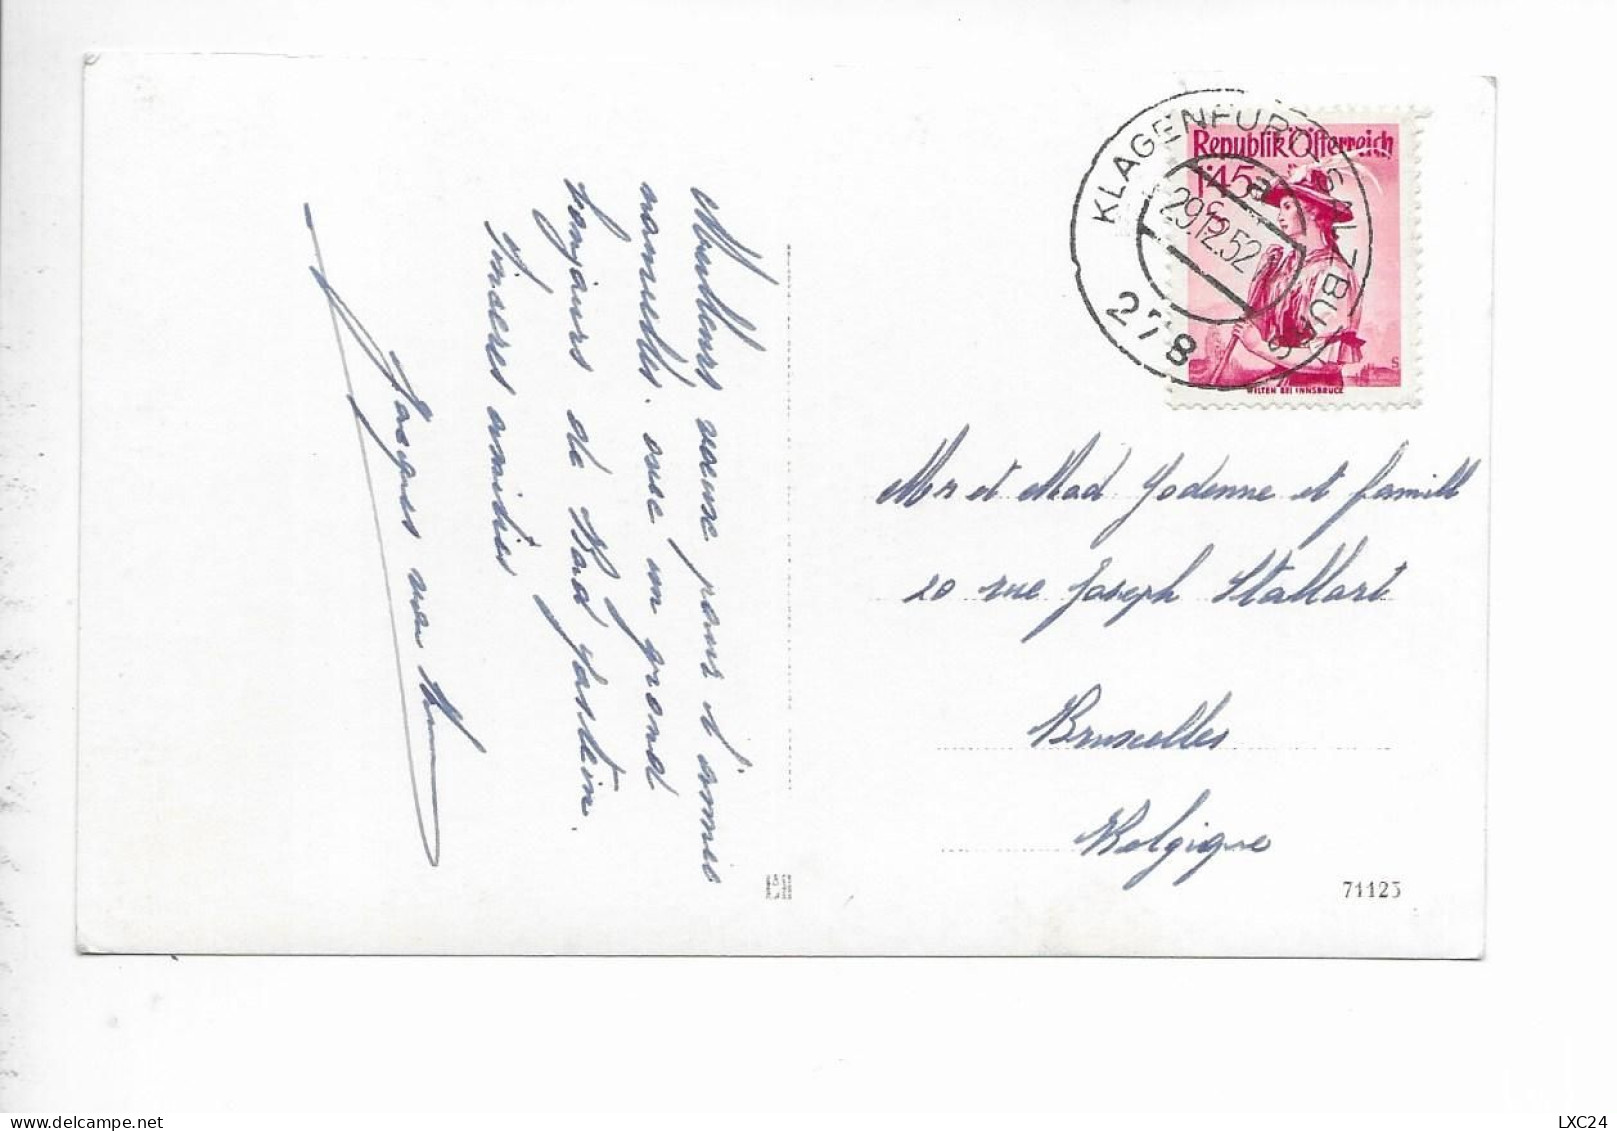 Meilleurs voeux pour l'année
nouvelle. avec un grand
bonjours de Bad gastein.
Sincères amitiés
Jacques van
KLAGENFURT-SALZBURG
a
29.12.52
278
Republik Österreich
1'45 S
WILTEN BEI INNSBRUCK
S
Mr et Mad Jodenne et famill
20 rue Joseph Stallart
Bruxelles
Belgique
71123
LXC24